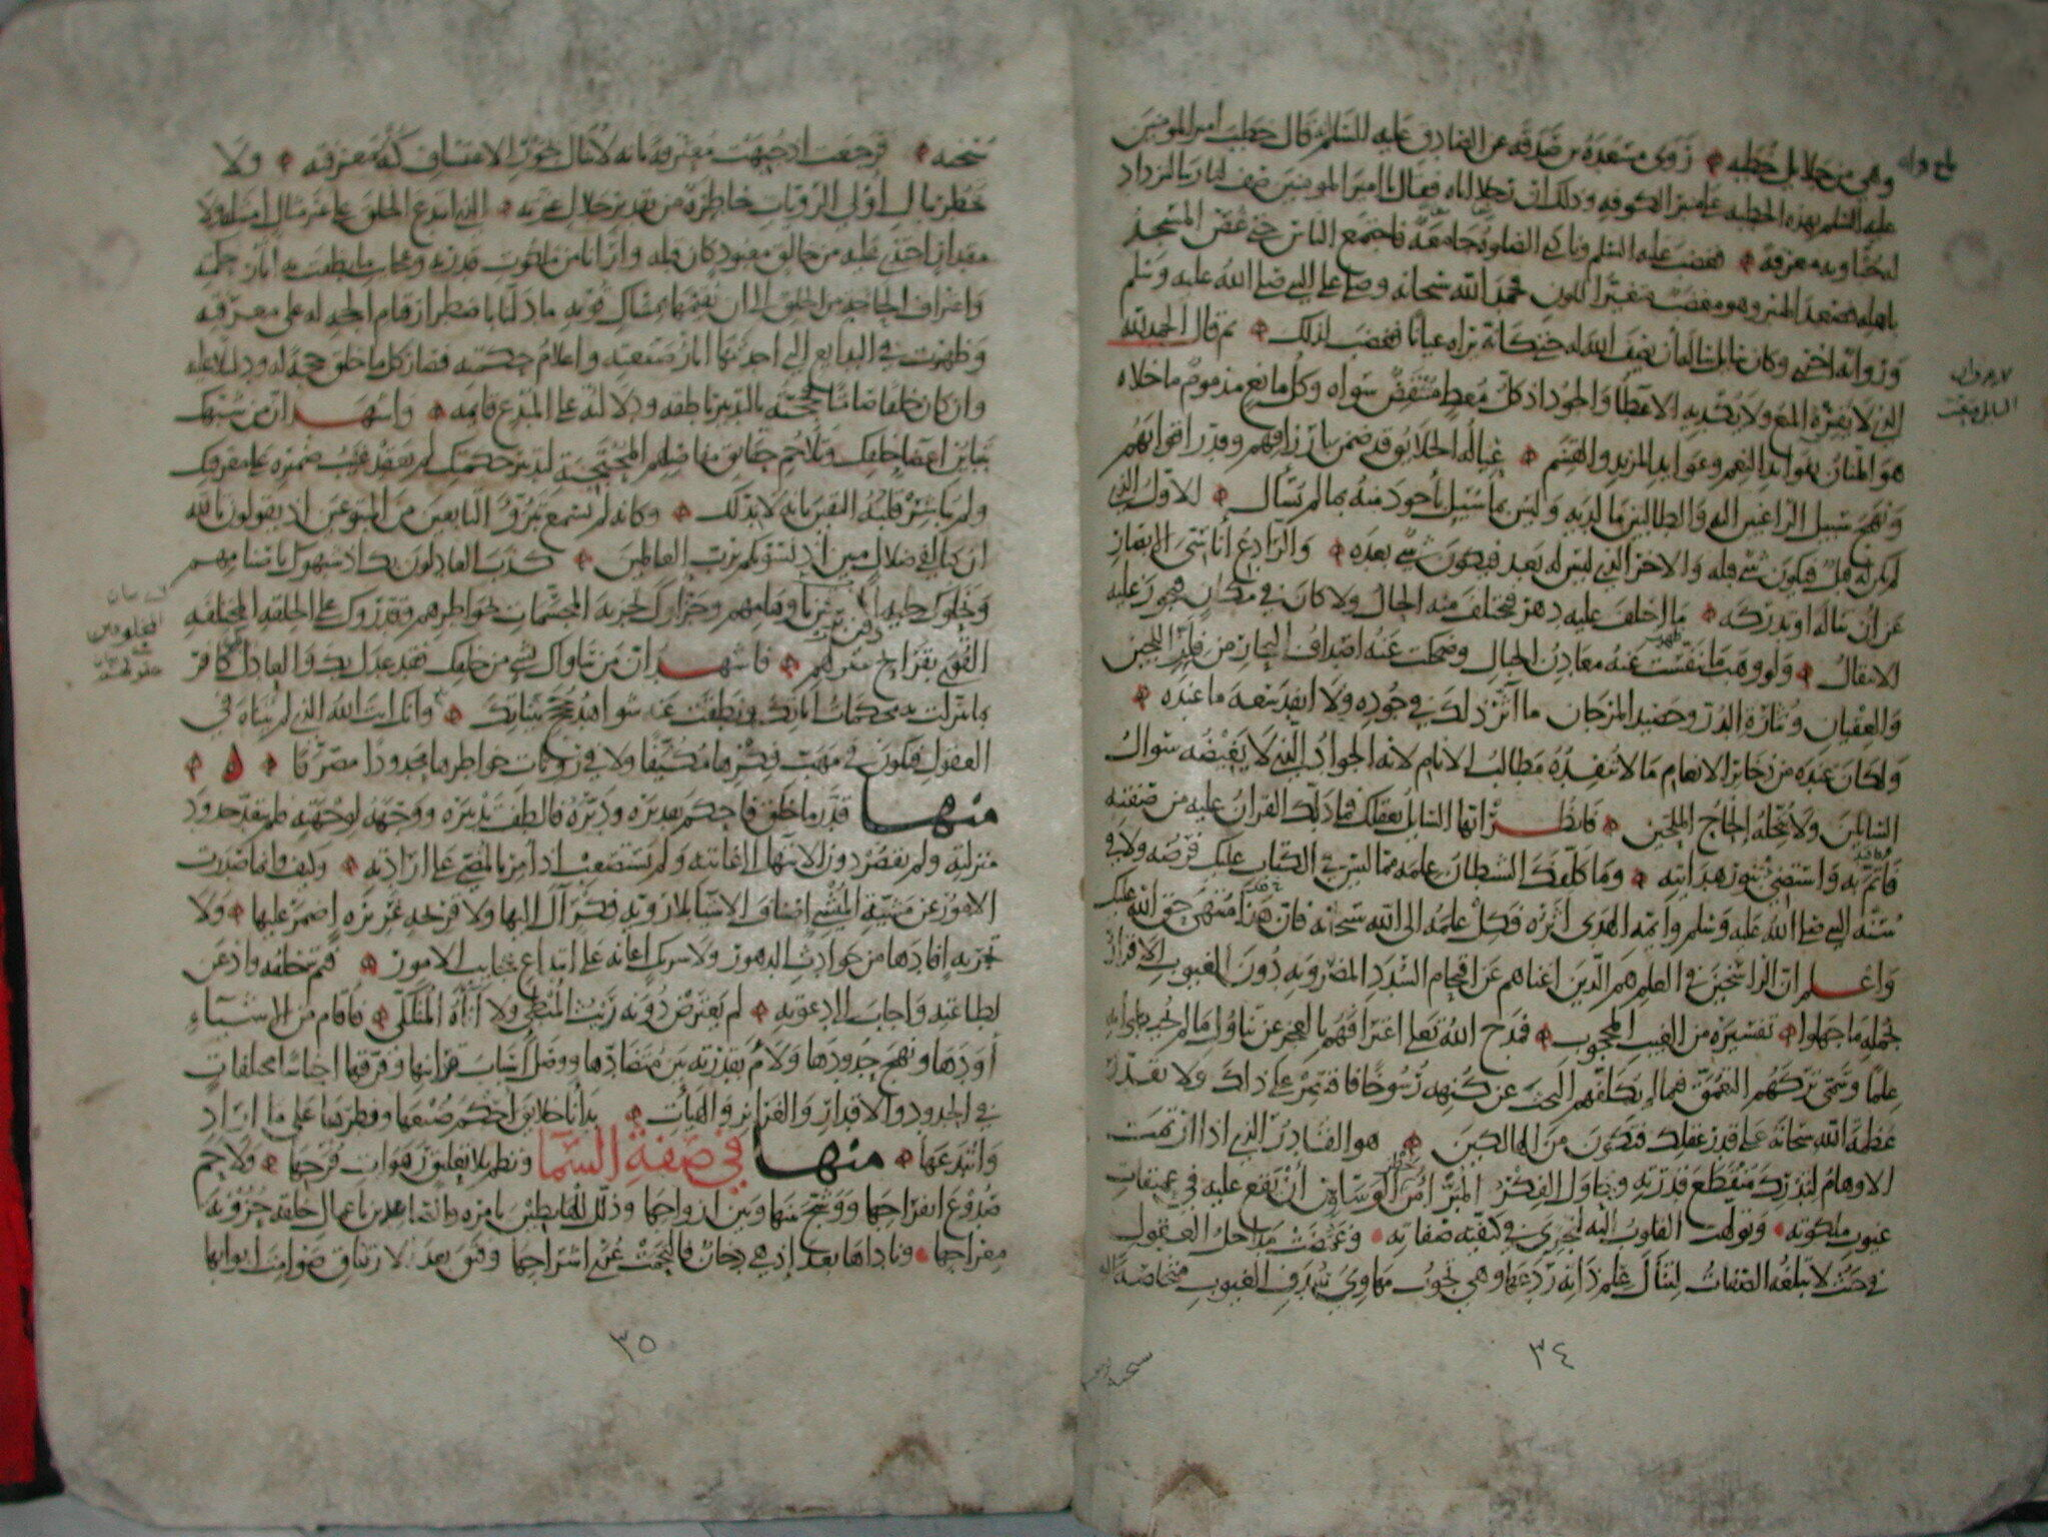 وهي من جلايل خطبه روى مسعدة بن صدقة عن الصادق عليه السلام قال خطب امير المومنين
عليه السلم بهذه الخطبه على منبر الكوفه وذلك ان رجلا اتاه فقال يا امير المومنين صف لنا ربنا لنزداد
له حبا وبه معرفة فغضب عليه السلم ونادى الصلوة جامعة فاجتمع الناس حتى غص المسجد
باهله فصعد المنبر وهو مغضب متغير اللون فحمد الله سبحانه وصلى على النبي صلى الله عليه وسلم
لذلك ثم قال الحمد لله
الذي لا يفره المنع ولا يكديه الاعطا والجود اذ كل معط منتقص سواه وكل مانع مذموم ما خلاه
هو المنان بفوايد النعم وعوايد المزيد والقسم عياله الخلايق قد ضمن بارزاقهم وقدر اقواتهم
ونهج سبيل الراغبين اليه والطالبين ما لديه وليس بما سيل باجود منه بما لم يسال الاول الذي
لم يكن له قبل فيكون شي قبله والاخر الذي ليس له بعد فيكون شي بعده والرادع اناسي الابصار
عن ان تناله او تدركه ما اختلف عليه دهر فتختلف منه الحال ولا كان في مكان فيجوز عليه
الانتقال ولو وهب ما تنفست عنه معادن الجبال وضحكت عنه اصداف البحار من فلز اللجين
والعقيان ونثارة الدر وحصيد المرجان ما اثر ذلك في جوده ولا انفد سعة ما عنده
ولكان عنده من ذخاير الانعام ما لا تنفده مطالب الانام لانه الجواد الذي لا يغيضه سوال
السايلين ولا يبخله الحاح الملحين فانظر ايها السايل بعقلك فما دلك القران عليه من صفته
فاتم به واستضئ بنور هدايته وما كلفك الشيطان علمه مما ليس في الكتاب عليك فرضه ولا في
سنة النبي صلى الله عليه وسلم وايمة الهدى اثره فكل علمه الى الله سبحانه فان هذا منتهى حق الله عليك
واعلم ان الراسخين في العلم هم الذين اغناهم عن اقتحام السدد المضروبة دون الغيوب الاقرار
بجملة ما جهلوا تفسيره من الغيب المحجوب فمدح الله تعلى اعترافهم بالعجز عن تناول ما لم يحيطوا به
علما وسمى تركهم التعمق فيما لم يكلفهم البحث عن كنهه رسوخا فاقتصر على ذلك ولا تقدر
عظمة الله سبحانه على قدر عقلك فتكون من الهالكين هو القادر الذي اذا ارتمت
الاوهام لتدرك منقطع قدرته وحاول الفكر المبرا من خطر الوساوس ان يقع عليه في عميقات
غيوب ملكوته وتولهت القلوب اليه لتجري في كيفية صفاته وغمضت مداخل العقول
في حيث لا تبلغه الصفات لتنال علم ذاته ردعها وهي تجوب مهاوي سدف الغيوب متخلصة اليه
٣٤
سبحانه فرجعت اذ جبهت معترفة بانه لا ينال بجور الاعتساف كنه معرفته ولا
تخطر ببال اولي الرويات خاطرة من تقدير جلال عزته الذي ابتدع الخلق على غير مثال امتثله ولا
مقدار احتذى عليه من خالق معبود كان قبله وارانا من ملكوت قدرته وعجايب ما نطقت به اثار حكمته
واعتراف الحاجة من الخلق الى ان يقيمها بمساك قوته ما دلنا باضطرار قيام الحجة له على معرفته
وظهرت في البدايع التي احدثها اثار صنعته واعلام حكمته فصار كل ما خلق حجة له ودليلا عليه
وان كان خلقا صامتا فحجته بالتدبير ناطقه ودلالته على المبدع قايمه واشهد ان من شبهك
بتباين اعضا خلقك وتلاحم حقاق مفاصلهم المحتجبة لتدبير حكمتك لم يعقد غيب ضميره على معرفتك
ولم يباشر قلبه اليقين بانه لا ند لك وكانه لم يسمع تبرؤ التابعين من المتبوعين اذ يقولون تالله
ان كنا لفي ضلال مبين اذ نسويكم برب العالمين كذب العادلون بك اذ شبهوك باصنامهم
ونحلوك حلية المخلوقين باوهامهم وجزاوك تجزية المجسمات بخواطرهم وقدروك على الخلقه المختلفه
القوى بقرايح عقولهم فاشهد ان من ساواك بشي من خلقك فقد عدل بك والعادل بك كافر
بما تنزلت به محكمات اياتك ونطقت عنه شواهد حجج بيناتك وانك انت الله الذي لم تتناه في
العقول فتكون في مهب فكرها مكيفا ولا في رويات خواطرها محدودا مصرفا
منها قدر ما خلق فاحكم تقديره ودبره فالطف تدبيره ووجهه لوجهته فلم يتعد حدود
منزلته ولم يقصر دون الانتها الى غايته ولم يستصعب اذ امر بالمضي على ارادته وكيف وانما صدرت
الامور عن مشيته المنشي اصناف الاشيا بلا روية فكر ال اليها ولا قريحة غريزة اضمر عليها ولا
تجربة افادها من حوادث الدهور ولا شريك اعانه على ابتداع عجايب الامور فتم خلقه واذعن
لطاعته واجاب الى دعوته لم يعترض دونه ريث المبطي ولا اناة المتلكي فاقام من الاشياء
اودها ونهج حدودها ولام بقدرته بين متضادها ووصل اسباب قراينها وفرقها اجناسا مختلفات
في الحدود والاقدار والغرايز والهيات بدايا خلايق احكم صنعها وفطرها على ما اراد
وابتدعها منها في صفة السما ونظم بلا تعليق رهوات فرجها ولاحم
صدوع انفراجها ووشج بينها وبين ازواجها وذلل للهابطين بامره والصاعدين باعمال خلقه حزونة
معراجها وناداها بعد اذ هي دخان فالتحمت عرى اشراجها وفتق بعد الارتتاق صوامت ابوابها
٣٥